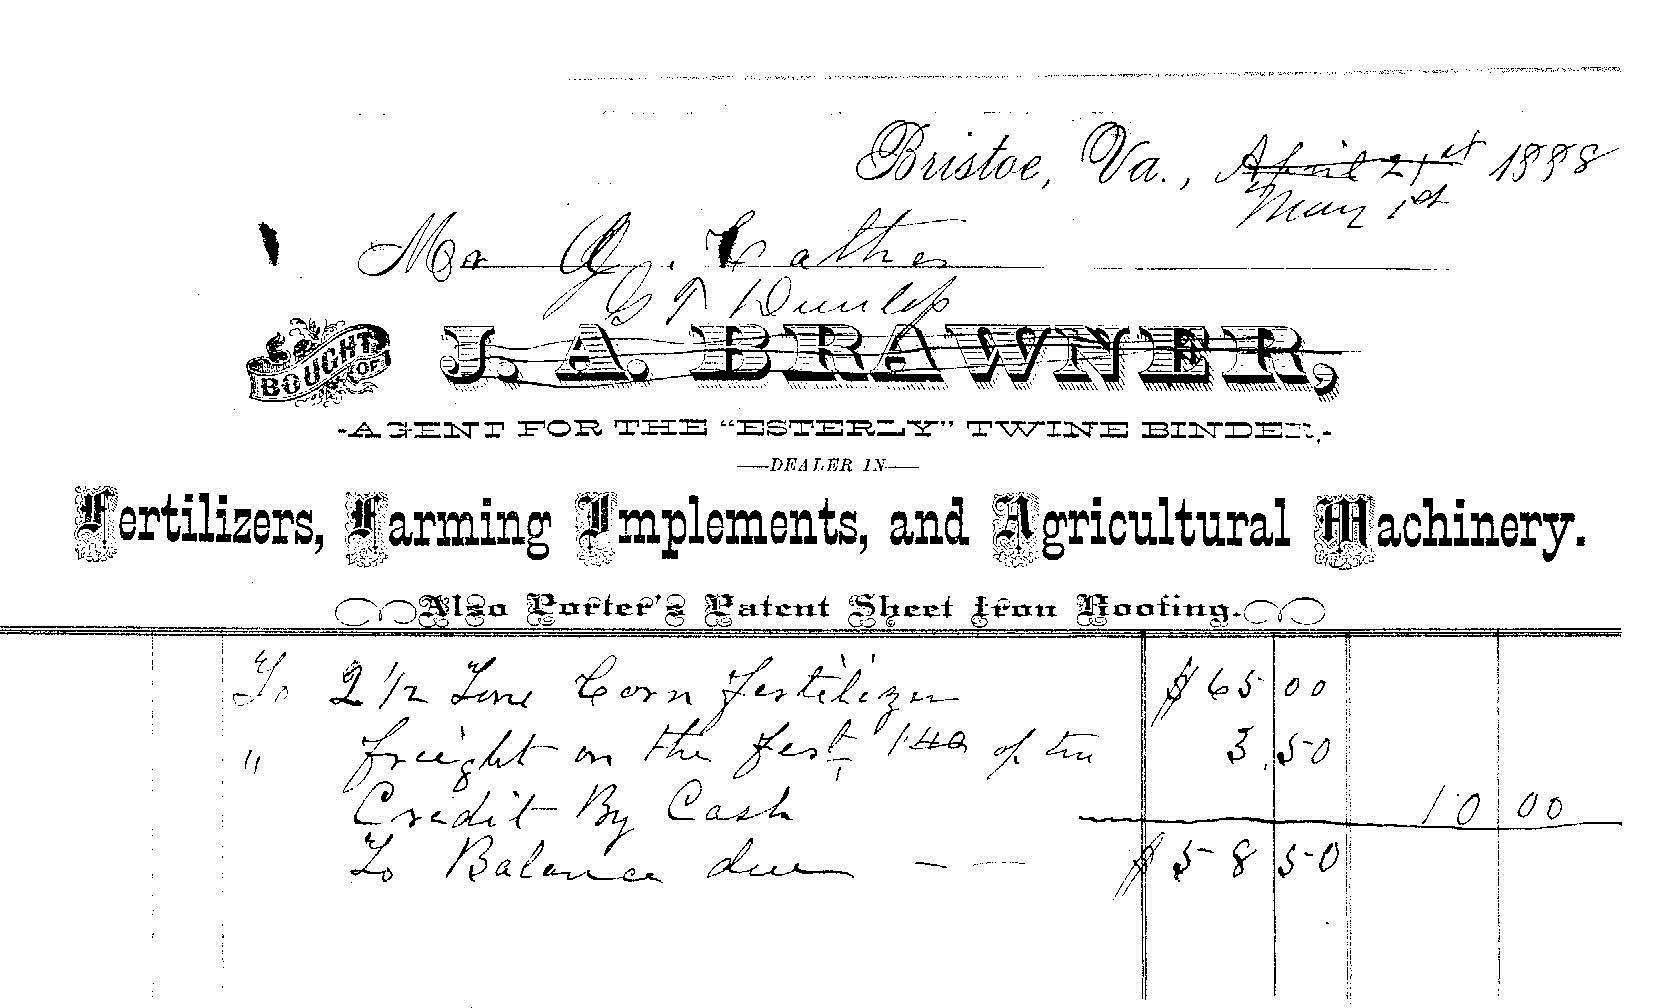 Bristoe, Va., April 21st 1888
May 1st
Mr J. Cather
G T Dunlop
BOUGHT OF J. A. BRAWNER,
AGENT FOR THE "ESTERLY" TWINE BINDER,
DEALER IN
Fertilizers, Farming Implements, and Agricultural Machinery.
Also Porter's Patent Sheet Iron Roofing.
To 2 1/2 Tons Corn Fertilizer $65 00
" freight on the fert 140 of tn 3.50
Credit By Cash 10 00
To Balance due — — $58 50